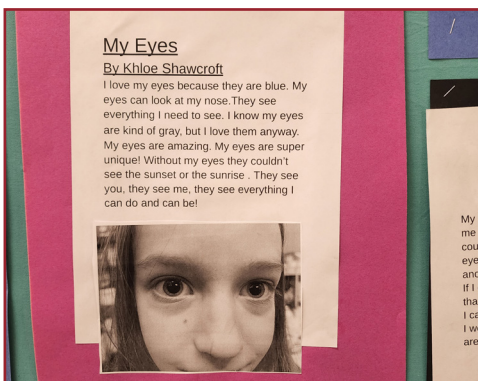 My Eyes
By Khloe Shawcroft
I love my eyes because they are blue. My
eyes can look at my nose.They see
everything I need to see. I know my eyes
are kind of gray, but I love them anyway.
My eyes are amazing. My eyes are super
unique! Without my eyes they couldn't
see the sunset or the sunrise . They see
you, they see me, they see everything I
can do and can be!
My
me
cou
eye
and
If I
tha
I ca
I w
are